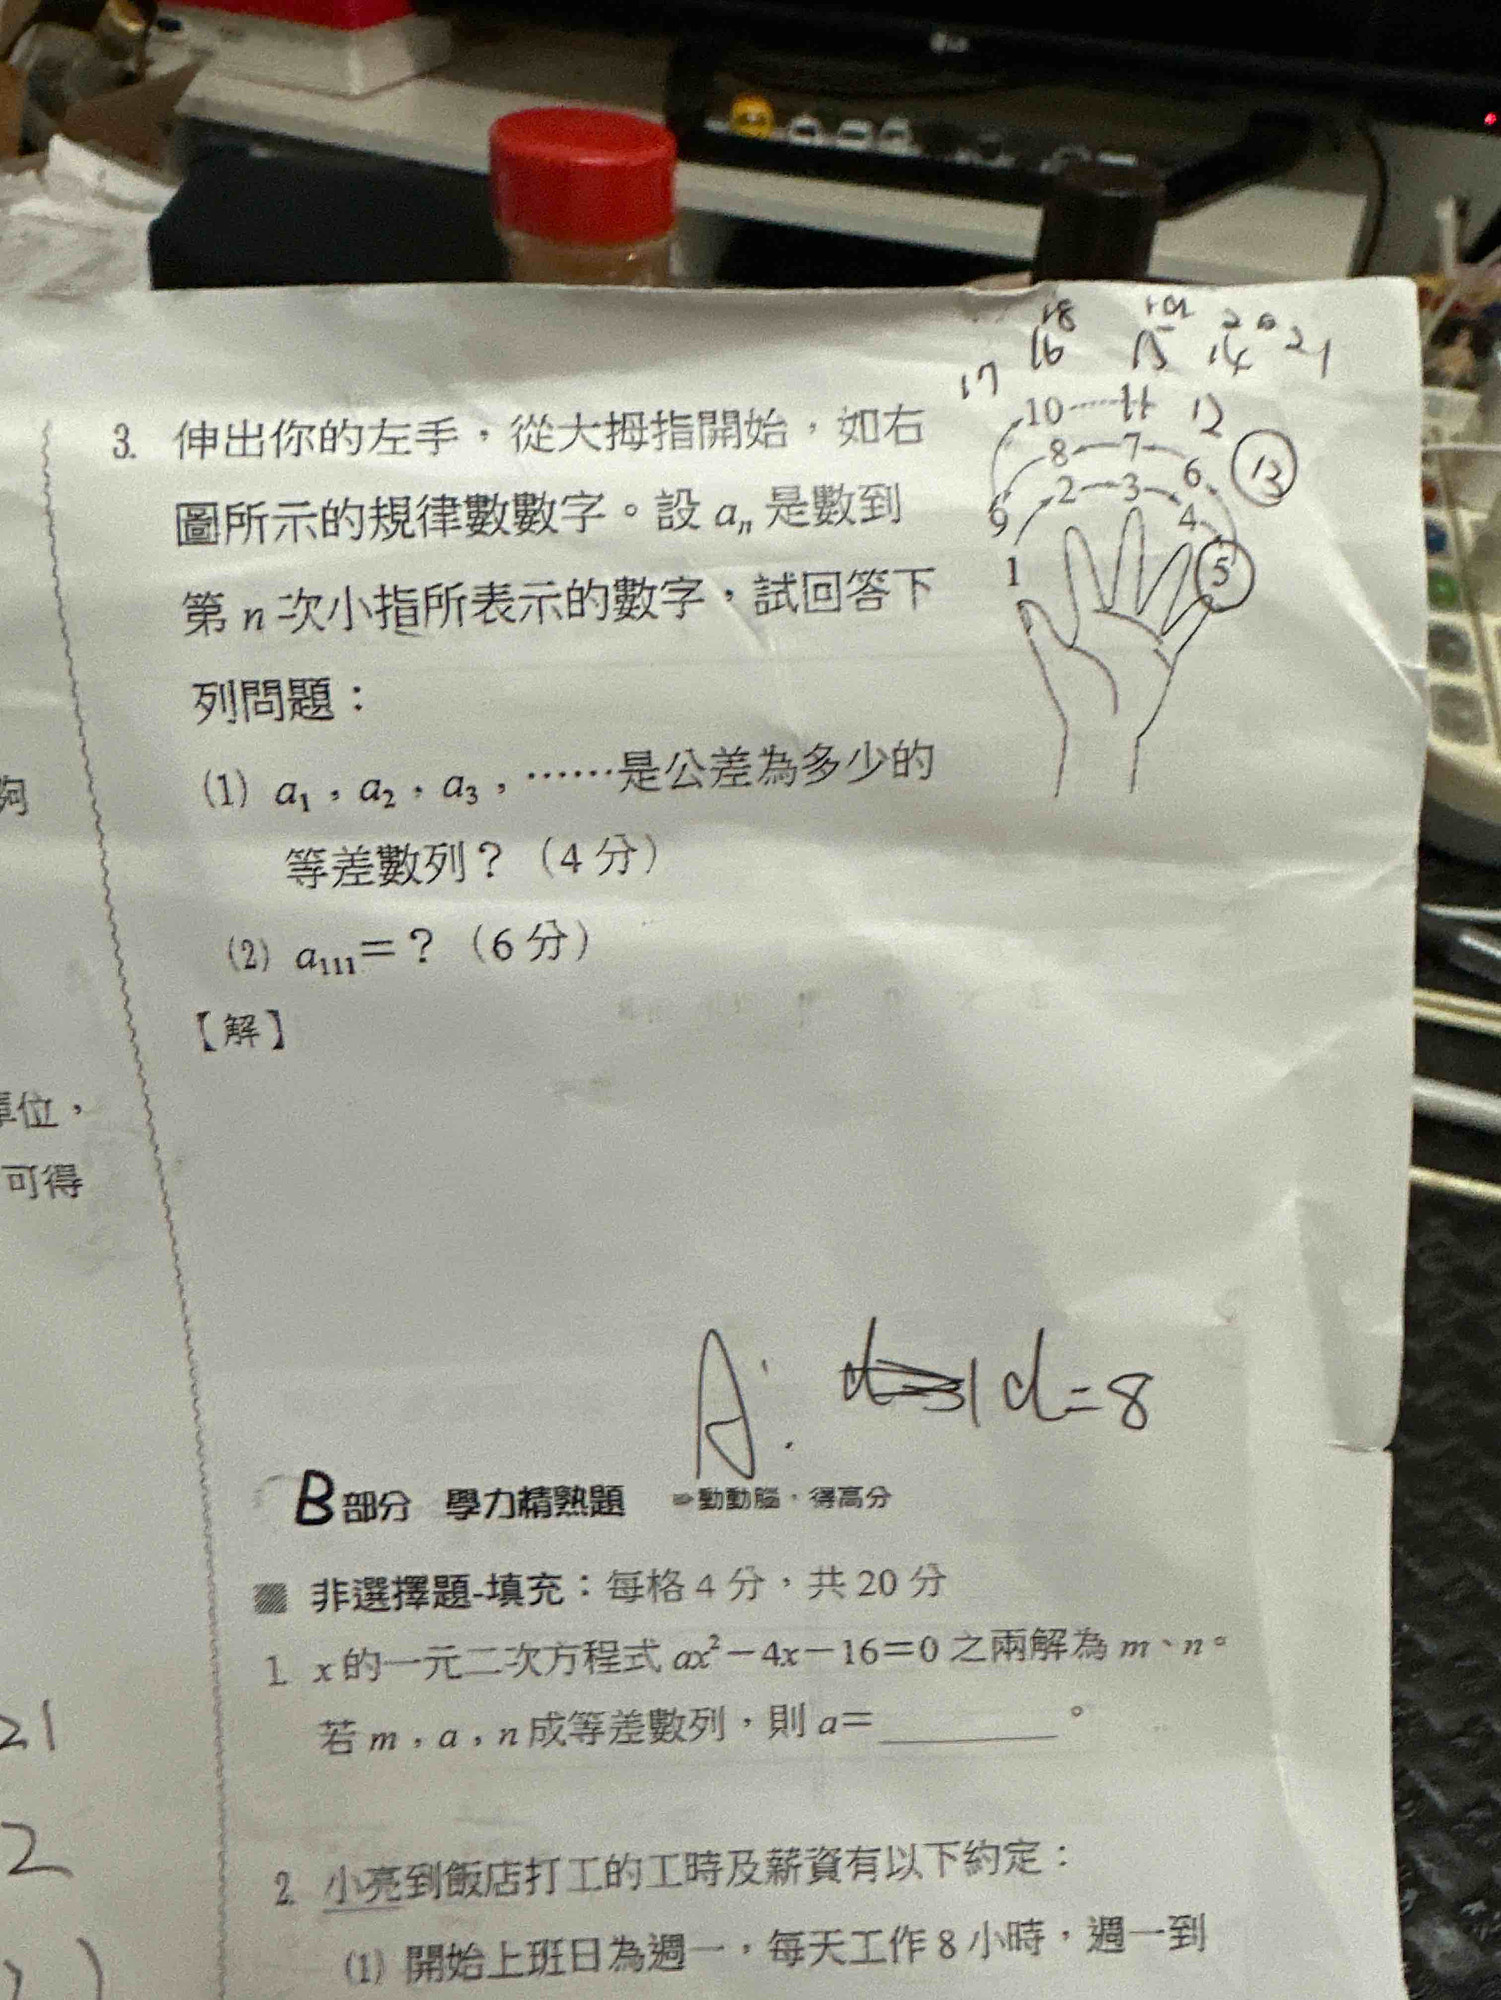 18 19 20 21
17 16 15 14
10 11 12
8 7 6 13
2 3 4
9
1 5
3. 伸出你的左手，從大拇指開始，如右
圖所示的規律數數字。設 aₙ 是數到
第 n 次小指所表示的數字，試回答下
列問題：
(1) a₁，a₂，a₃，……是公差為多少的
等差數列？（4 分）
(2) a₁₁₁＝？（6 分）
【解】
A: d=8
B部分 學力精熟題 動動腦，得高分
非選擇題-填充：每格 4 分，共 20 分
1. x 的一元二次方程式 ax²－4x－16＝0 之兩解為 m、n。
若 m，a，n 成等差數列，則 a＝______。
2. 小亮到飯店打工的工時及薪資有以下約定：
(1) 開始上班日為週一，每天工作 8 小時，週一到
位，
可得
21
2